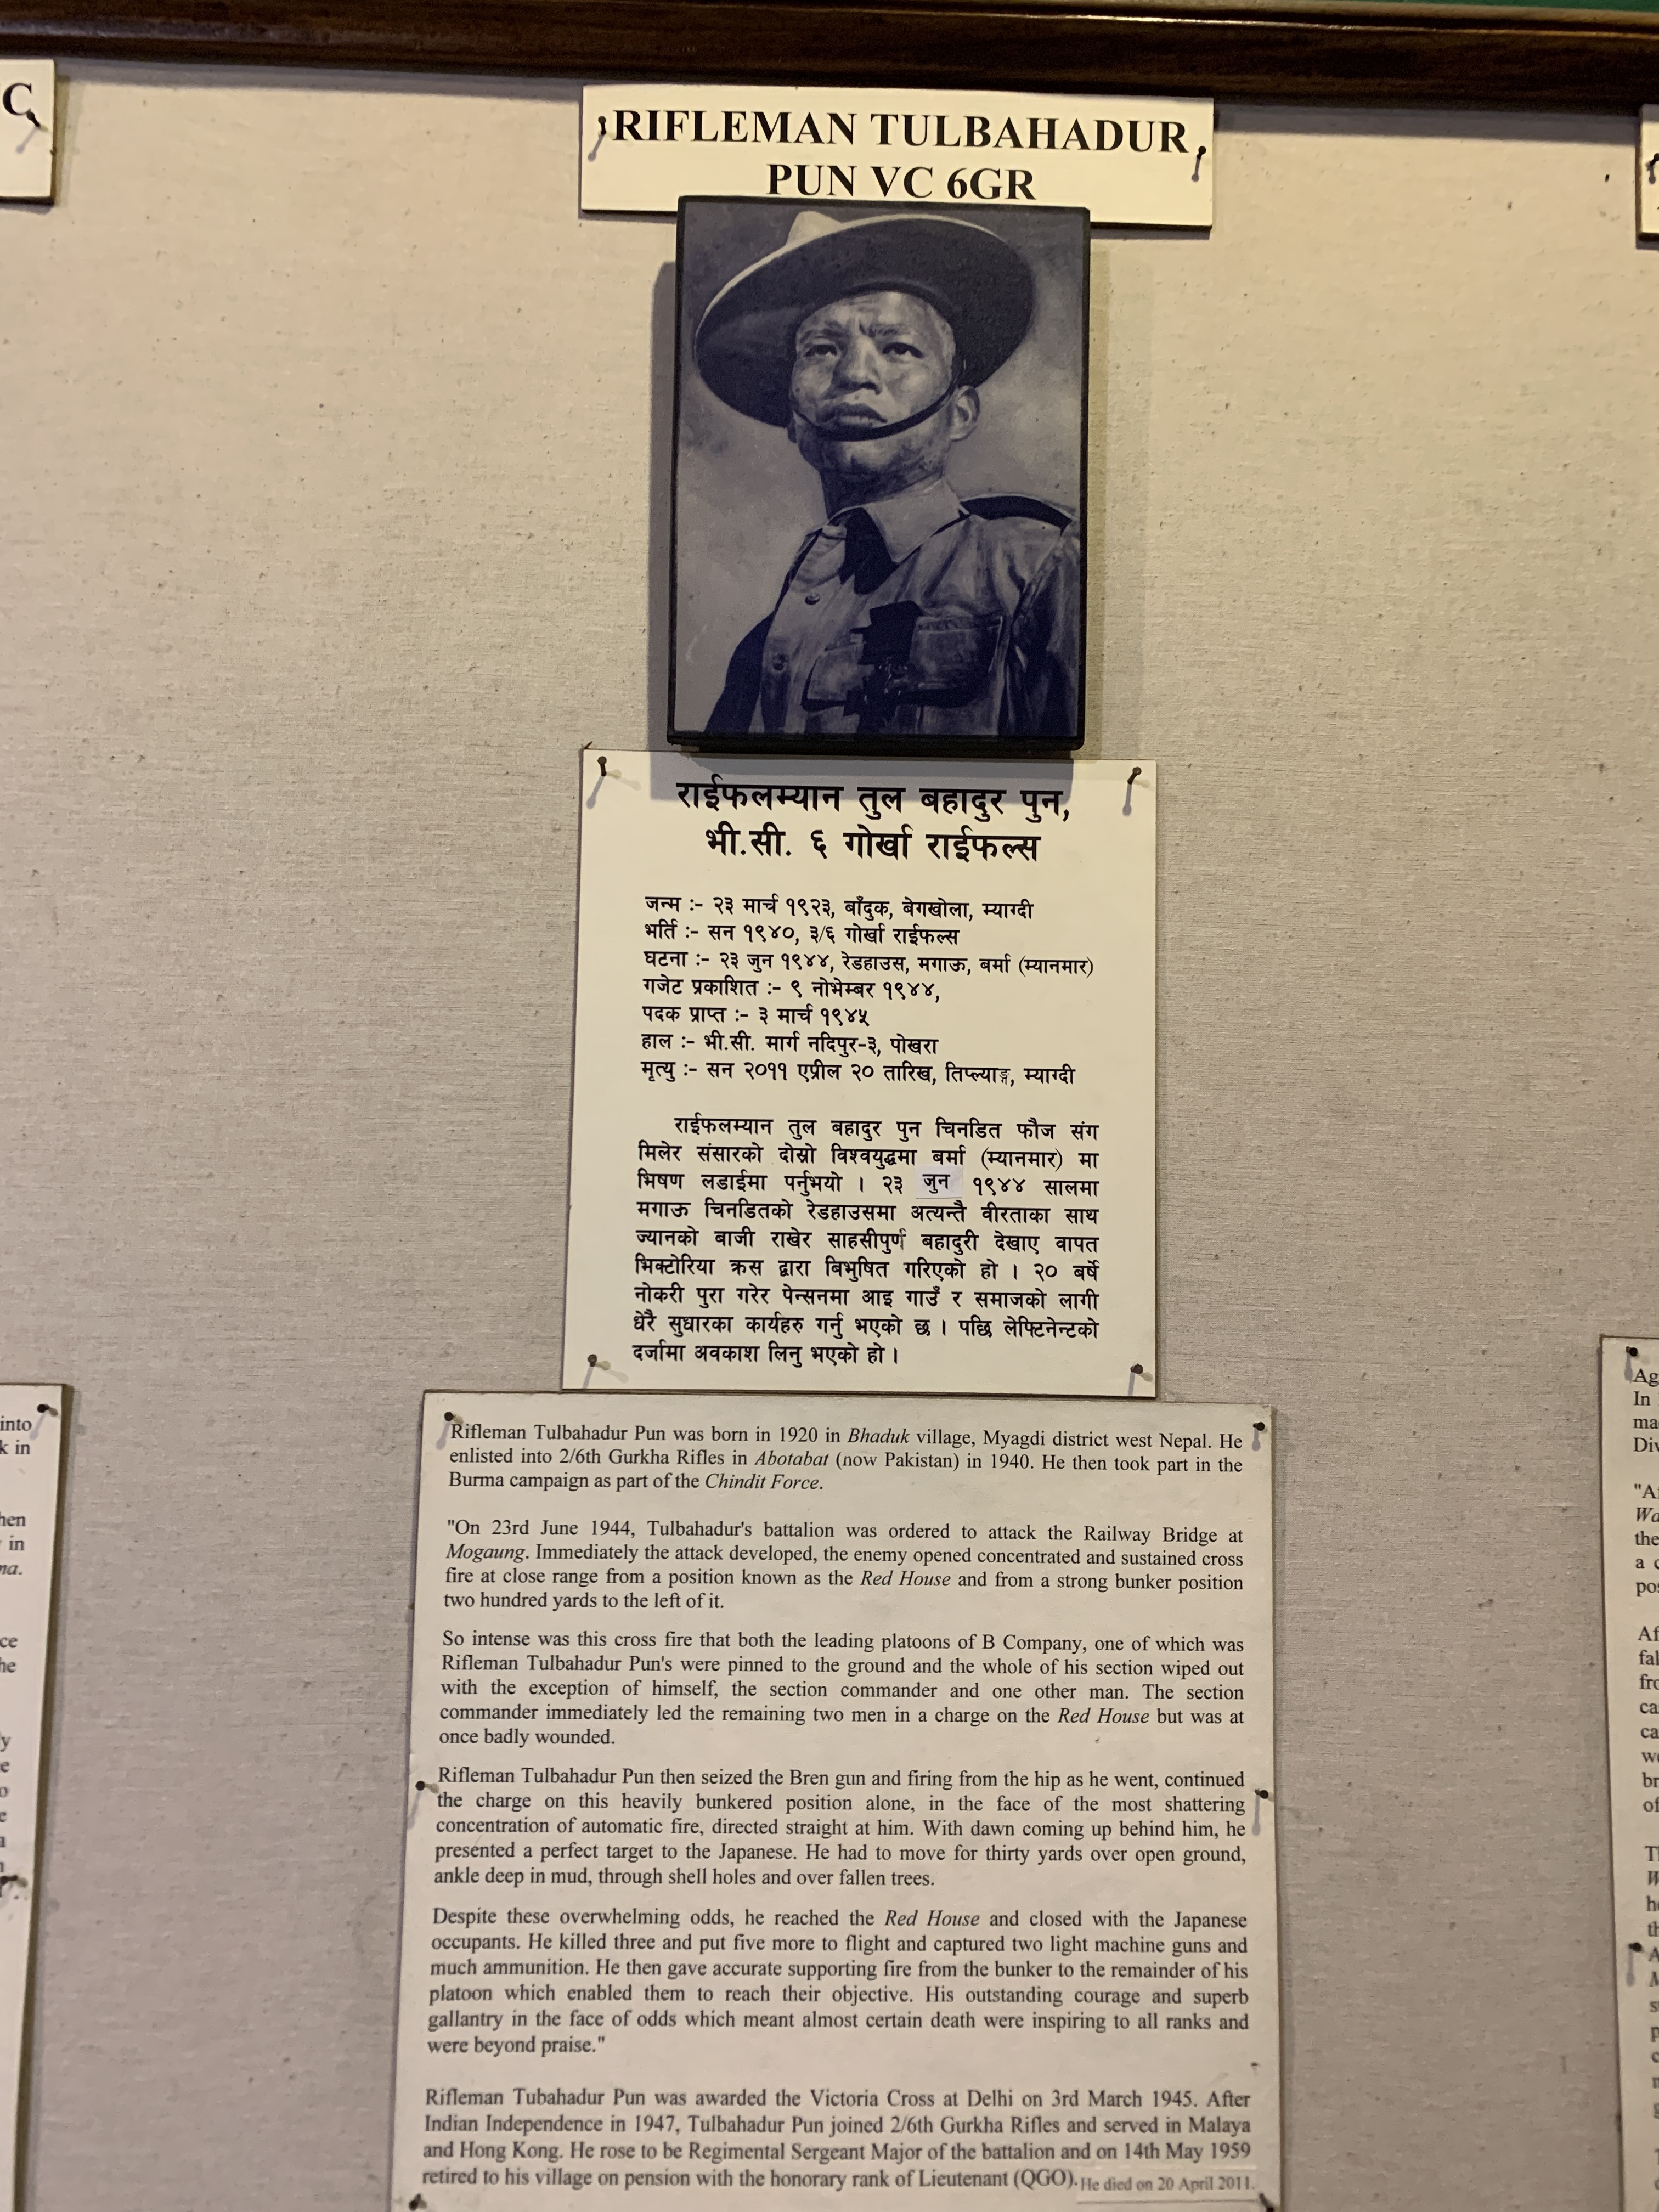 C
RIFLEMAN TULBAHADUR
PUN VC 6GR
राईफलम्यान तुल बहादुर पुन,
भी.सी. ६ गोर्खा राईफल्स
जन्म :- २३ मार्च १९२३, बाँदुक, बेगखोला, म्याग्दी
भर्ति :- सन १९४०, ३/६ गोर्खा राईफल्स
घटना :- २३ जुन १९४४, रेडहाउस, मगाऊ, बर्मा (म्यानमार)
गजेट प्रकाशित :- ९ नोभेम्बर १९४४,
पदक प्राप्त :- ३ मार्च १९४५
हाल :- भी.सी. मार्ग नदिपुर-३, पोखरा
मृत्यु :- सन २०११ एप्रील २० तारिख, तिप्ल्याङ्ग, म्याग्दी
राईफलम्यान तुल बहादुर पुन चिनडित फौज संग
मिलेर संसारको दोस्रो विश्वयुद्धमा बर्मा (म्यानमार) मा
भिषण लडाईमा पर्नुभयो । २३ जुन १९४४ सालमा
मगाऊ चिनडितको रेडहाउसमा अत्यन्तै वीरताका साथ
ज्यानको बाजी राखेर साहसीपुर्ण बहादुरी देखाए वापत
भिक्टोरिया क्रस द्वारा बिभुषित गरिएको हो । २० बर्षे
नोकरी पुरा गरेर पेन्सनमा आइ गाउँ र समाजको लागी
धेरै सुधारका कार्यहरु गर्नु भएको छ । पछि लेफ्टिनेन्टको
दर्जामा अवकाश लिनु भएको हो ।
Rifleman Tulbahadur Pun was born in 1920 in Bhaduk village, Myagdi district west Nepal. He
enlisted into 2/6th Gurkha Rifles in Abotabat (now Pakistan) in 1940. He then took part in the
Burma campaign as part of the Chindit Force.
"On 23rd June 1944, Tulbahadur's battalion was ordered to attack the Railway Bridge at
Mogaung. Immediately the attack developed, the enemy opened concentrated and sustained cross
fire at close range from a position known as the Red House and from a strong bunker position
two hundred yards to the left of it.
So intense was this cross fire that both the leading platoons of B Company, one of which was
Rifleman Tulbahadur Pun's were pinned to the ground and the whole of his section wiped out
with the exception of himself, the section commander and one other man. The section
commander immediately led the remaining two men in a charge on the Red House but was at
once badly wounded.
Rifleman Tulbahadur Pun then seized the Bren gun and firing from the hip as he went, continued
the charge on this heavily bunkered position alone, in the face of the most shattering
concentration of automatic fire, directed straight at him. With dawn coming up behind him, he
presented a perfect target to the Japanese. He had to move for thirty yards over open ground,
ankle deep in mud, through shell holes and over fallen trees.
Despite these overwhelming odds, he reached the Red House and closed with the Japanese
occupants. He killed three and put five more to flight and captured two light machine guns and
much ammunition. He then gave accurate supporting fire from the bunker to the remainder of his
platoon which enabled them to reach their objective. His outstanding courage and superb
gallantry in the face of odds which meant almost certain death were inspiring to all ranks and
were beyond praise."
Rifleman Tubahadur Pun was awarded the Victoria Cross at Delhi on 3rd March 1945. After
Indian Independence in 1947, Tulbahadur Pun joined 2/6th Gurkha Rifles and served in Malaya
and Hong Kong. He rose to be Regimental Sergeant Major of the battalion and on 14th May 1959
retired to his village on pension with the honorary rank of Lieutenant (QGO). He died on 20 April 2011.